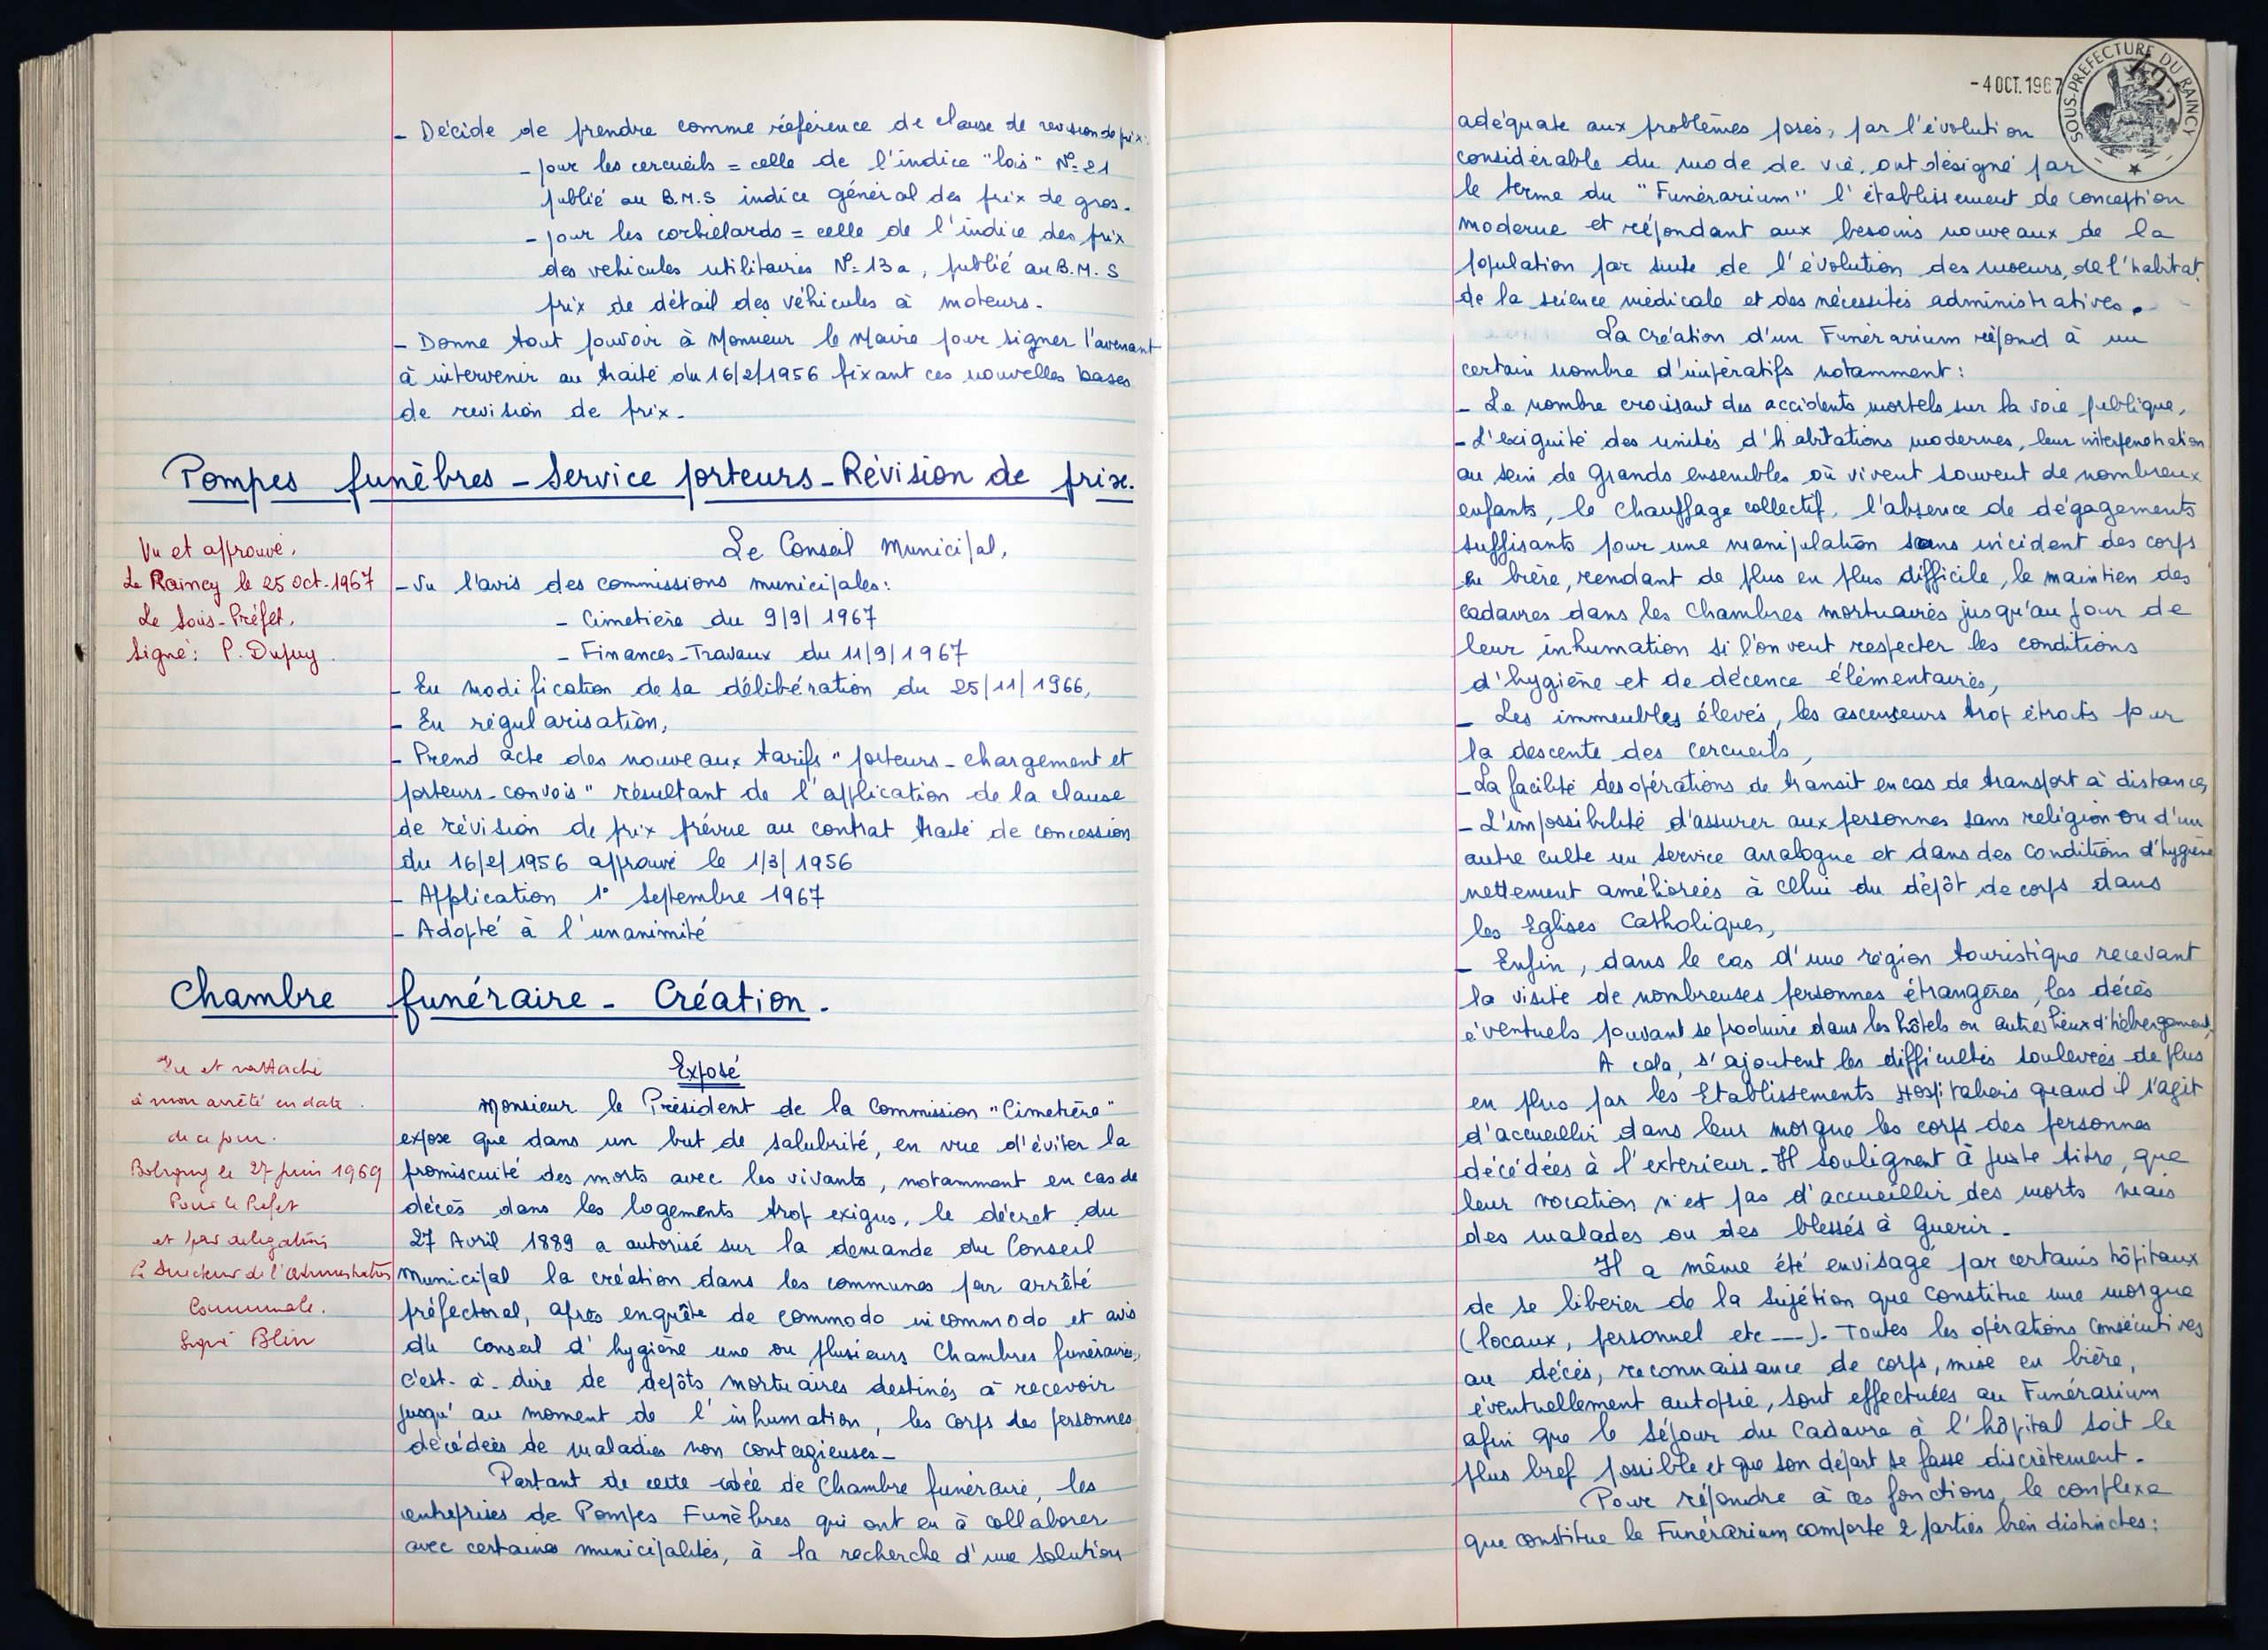 - Décide de prendre comme référence de clause de revision de prix:
- pour les cercueils = celle de l'indice "bois" N° 21
publié au B.M.S indice général des prix de gros.
- pour les corbillards = celle de l'indice des prix
des vehicules utilitaires N° 13a, publié au B.M.S
prix de détail des véhicules à moteurs.
- Donne tout pouvoir à Monsieur le Maire pour signer l'avenant
à intervenir au traité du 16/2/1956 fixant ces nouvelles bases
de revision de prix.
Pompes funèbres - Service porteurs - Révision de prix.
Vu et approuvé,
Le Raincy le 25 oct. 1967
Le Sous-Préfet,
Signé: P. Dupuy.
Le Conseil Municipal,
- Vu l'avis des commissions municipales:
- Cimetière du 9/9/1967
- Finances-Travaux du 11/9/1967
- En modification de sa délibération du 25/11/1966,
- En régularisation,
- Prend acte des nouveaux tarifs "porteurs-chargement et
porteurs-convois" résultant de l'application de la clause
de révision de prix prévue au contrat traité de concession
du 16/2/1956 approuvé le 1/3/1956
- Application 1° Septembre 1967
- Adopté à l'unanimité
Chambre funéraire - Création.
Vu et rattaché
à mon arrêté en date
de ce jour.
Bobigny le 27 juin 1969
Pour le Préfet
et par délégation
Le Directeur de l'Administration
Communale.
Signé Blin
Exposé
Monsieur le Président de la Commission "Cimetière"
expose que dans un but de salubrité, en vue d'éviter la
promiscuité des morts avec les vivants, notamment en cas de
décès dans les logements trop exigus, le décret du
27 Avril 1889 a autorisé sur la demande du Conseil
Municipal la création dans les communes par arrêté
préfectoral, après enquête de commodo incommodo et avis
du Conseil d'hygiène une ou plusieurs Chambres funéraires,
c'est-à-dire de dépôts mortuaires destinés à recevoir
jusqu'au moment de l'inhumation, les corps des personnes
décédées de maladies non contagieuses-
Partant de cette idée de Chambre funéraire, les
entreprises de Pompes Funèbres qui ont eu à collaborer
avec certaines municipalités, à la recherche d'une solution
-4 OCT. 1967
SOUS-PREFECTURE DU RAINCY
adéquate aux problèmes posés, par l'évolution
considérable du mode de vie, ont désigné par
le terme du "Funérarium" l'établissement de conception
moderne et répondant aux besoins nouveaux de la
population par suite de l'évolution des moeurs, de l'habitat,
de la science médicale et des nécessités administratives.
La création d'un Funérarium répond à un
certain nombre d'impératifs notamment:
- Le nombre croissant des accidents mortels sur la voie publique,
- L'exiguité des unités d'habitations modernes, leur interpénétration
au sein de Grands ensembles où vivent souvent de nombreux
enfants, le chauffage collectif, l'absence de dégagements
suffisants pour une manipulation sans incident des corps
en bière, rendant de plus en plus difficile, le maintien des
cadavres dans les chambres mortuaires jusqu'au jour de
leur inhumation si l'on veut respecter les conditions
d'hygiène et de décence élémentaires,
- Les immeubles élevés, les ascenseurs trop étroits pour
la descente des cercueils,
- La facilité des opérations de transit en cas de transport à distance,
- L'impossibilité d'assurer aux personnes sans religion ou d'un
autre culte un service analogue et dans des conditions d'hygiène
nettement améliorées à celui du dépôt de corps dans
les Eglises Catholiques,
- Enfin, dans le cas d'une région touristique recevant
la visite de nombreuses personnes étrangères, les décès
éventuels pouvant se produire dans les hôtels ou autres lieux d'hébergement,
A cela, s'ajoutent les difficultés soulevées de plus
en plus par les Etablissements Hospitaliers quand il s'agit
d'accueillir dans leur morgue les corps des personnes
décédées à l'exterieur. Il soulignent à juste titre, que
leur vocation n'est pas d'accueillir des morts mais
des malades ou des blessés à guerir.
Il a même été envisagé par certains hôpitaux
de se libérer de la sujétion que constitue une morgue
(locaux, personnel etc ---). Toutes les opérations consécutives
au décès, reconnaissance de corps, mise en bière,
éventuellement autopsie, sont effectuées au Funérarium
afin que le séjour du cadavre à l'hôpital soit le
plus bref possible et que son départ se fasse discrètement.
Pour répondre à ces fonctions, le complexe
que constitue le Funérarium comporte 2 parties bien distinctes: